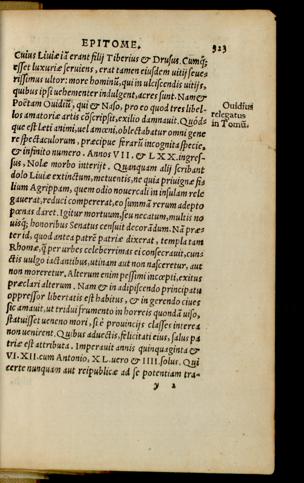 EPITOME. 323
Cuius Liuiæ iã erant filij Tiberius & Drusus. Cumq́;
esset luxuriæ seruiens, erat tamen eiusdem uitij seue-
rissimus ultor: more hominũ, qui in ulciscendis uitijs,
quibus ipsi uehementer indulgent, acres sunt. Nam &
Poëtam Ouidiũ, qui & Naso, pro eo quod tres libel-
los amatoriæ artis cõscripsit, exilio damnauit. Quód-
que est læti animi, uel amœni, oblectabatur omni gene
re spectaculorum, præcipue ferarũ incognita specie,
& infinito numero. Annos VII. & LXX. ingres-
sus, Nolæ morbo interijt. Quanquam alij scribant
dolo Liuiæ extinctum, metuentis, ne quia priuignæ fi
lium Agrippam, quem odio nouercali in insulam rele
gauerat, reduci compererat, eo summã rerum adepto
pœnas daret. Igitur mortuum, seu necatum, multis no
uisq́; honoribus Senatus censuit decorãdum. Nã præ=
ter id, quod antea patrẽ patriæ dixerat, templa tam
Rhomæ, q̃ per urbes celeberrimas ei consecrauit, cun=
ctis uulgo iactantibus, utinam aut non nasceretur, aut
non moreretur. Alterum enim pessimi incœpti, exitus
præclari alterum. Nam & in adipiscendo principatu
oppressor libertatis est habitus, & in gerendo ciues
sic amauit, ut tridui frumento in horreis quondã uiso,
statuisset ueneno mori, si è prouincijs classes interea
non uenirent. Quibus aduectis, felicitati eius, salus pa
triæ est attributa. Imperauit annis quinquaginta &
VI. XII. cum Antonio, XL. uero & IIII. solus. Qui
certe nunquam aut reipublicæ ad se potentiam tra-
y 2
Ouidius
relegatus
in Tomũ.